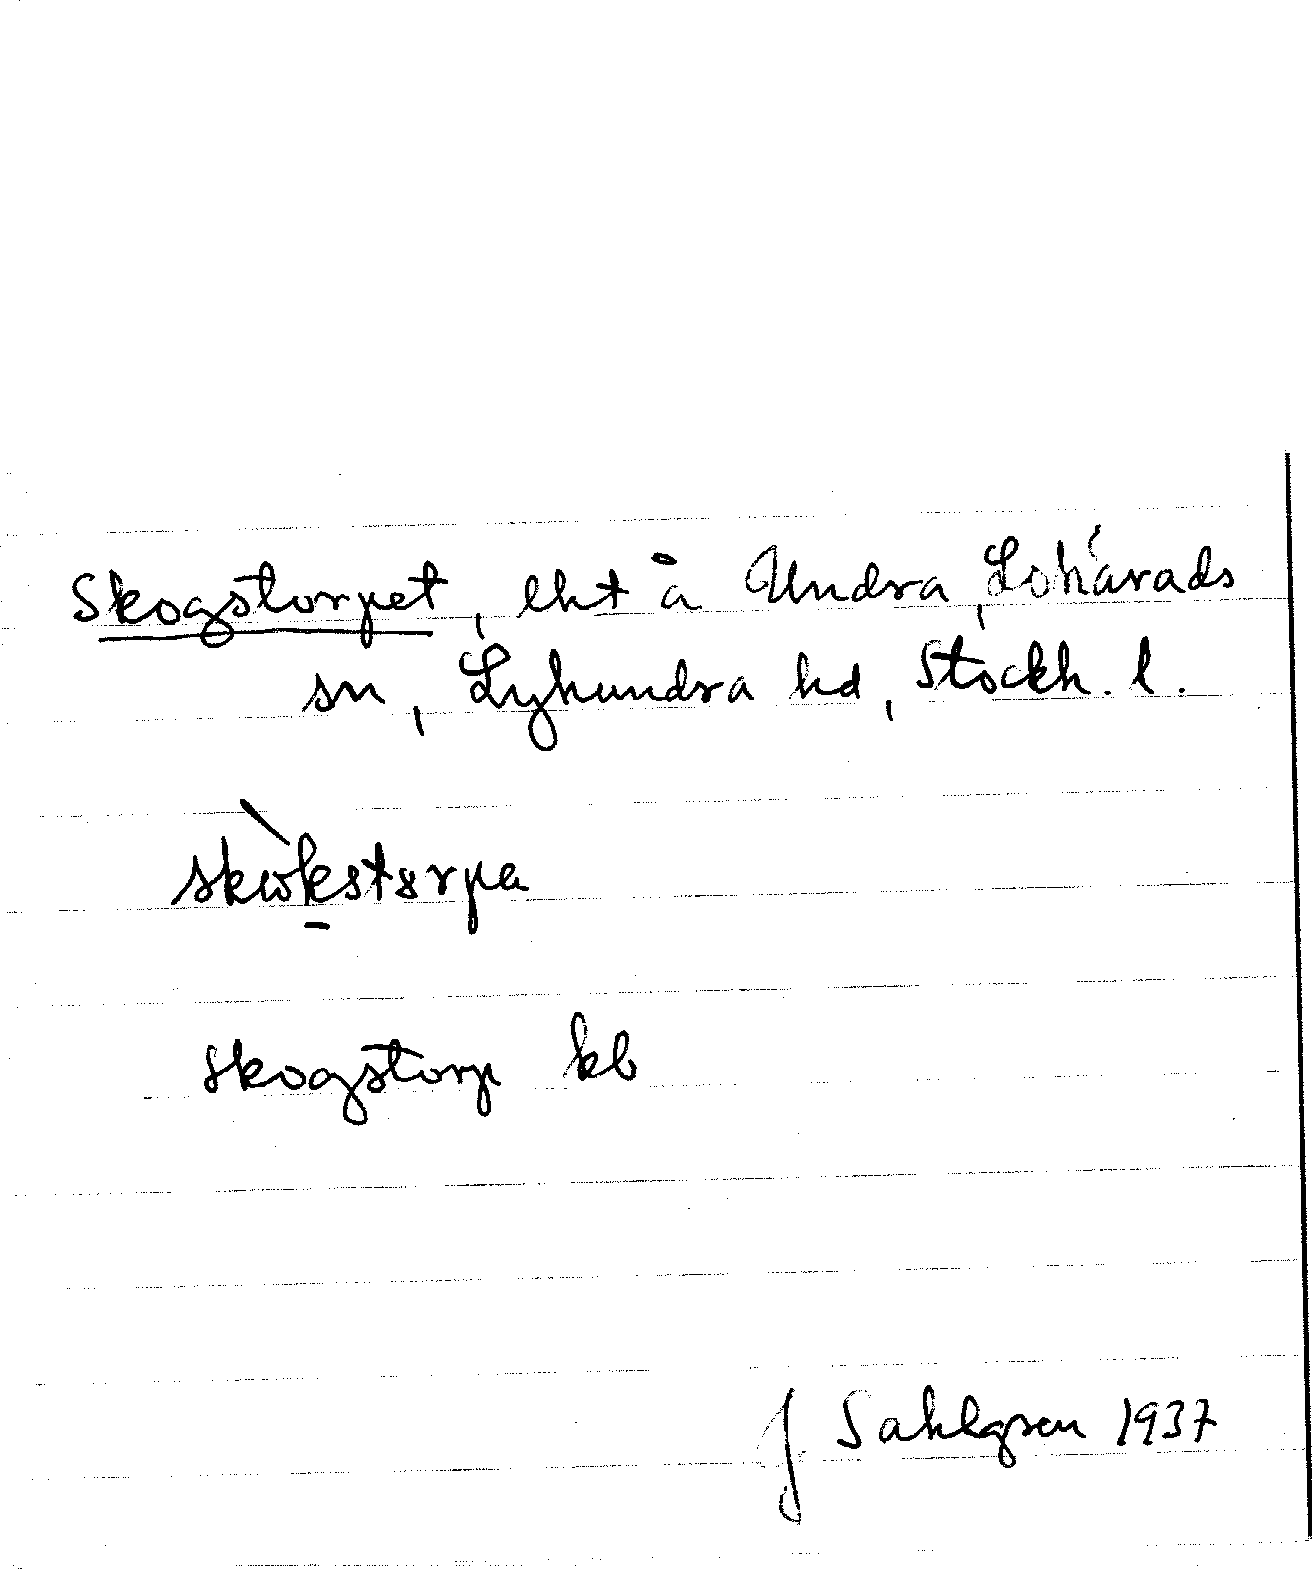 Skogstorpet, lht å Undra, Lohärads
sn, Lyhundra hd, Stockh. l.
skωk̠stȣrpa
Skogstorp kb
J Sahlgren 1937